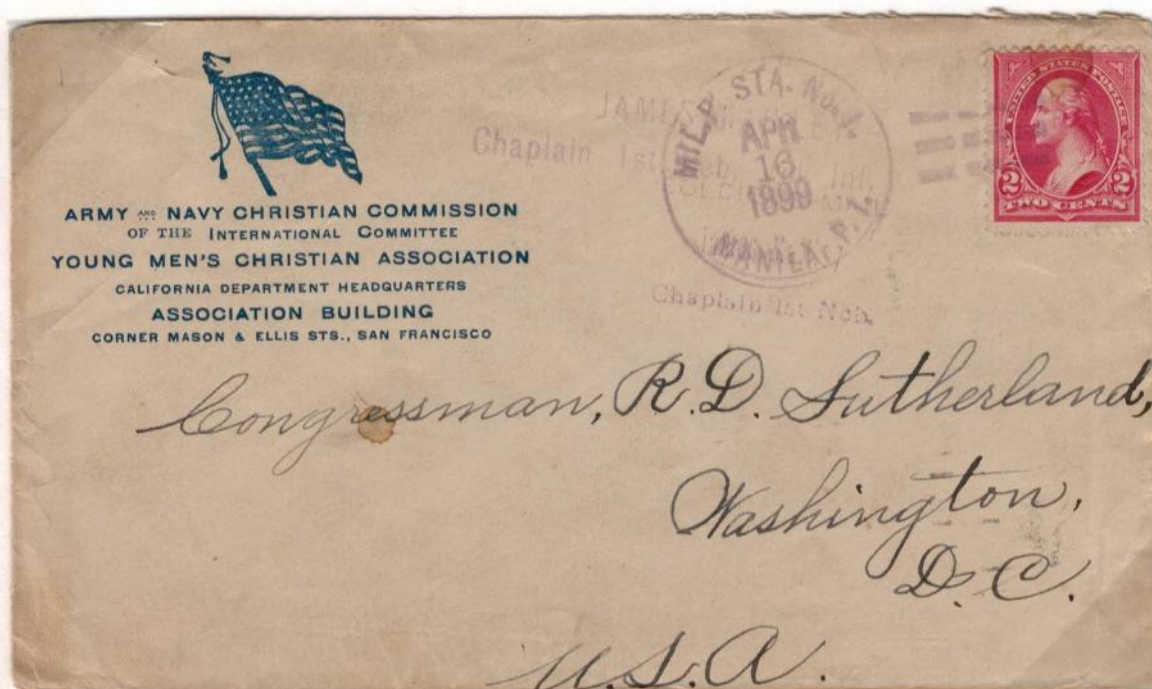 ARMY AND NAVY CHRISTIAN COMMISSION
OF THE INTERNATIONAL COMMITTEE
YOUNG MEN'S CHRISTIAN ASSOCIATION
CALIFORNIA DEPARTMENT HEADQUARTERS
ASSOCIATION BUILDING
CORNER MASON & ELLIS STS., SAN FRANCISCO
Chaplain 1st Inf.
MIL. P. STA. No. 1.
APR
16
1899
MANILA, P. I.
Chaplain 1st Neb.
UNITED STATES POSTAGE
2 2
TWO CENTS
Congressman, R. D. Sutherland,
Washington,
D. C.
U. S. A.